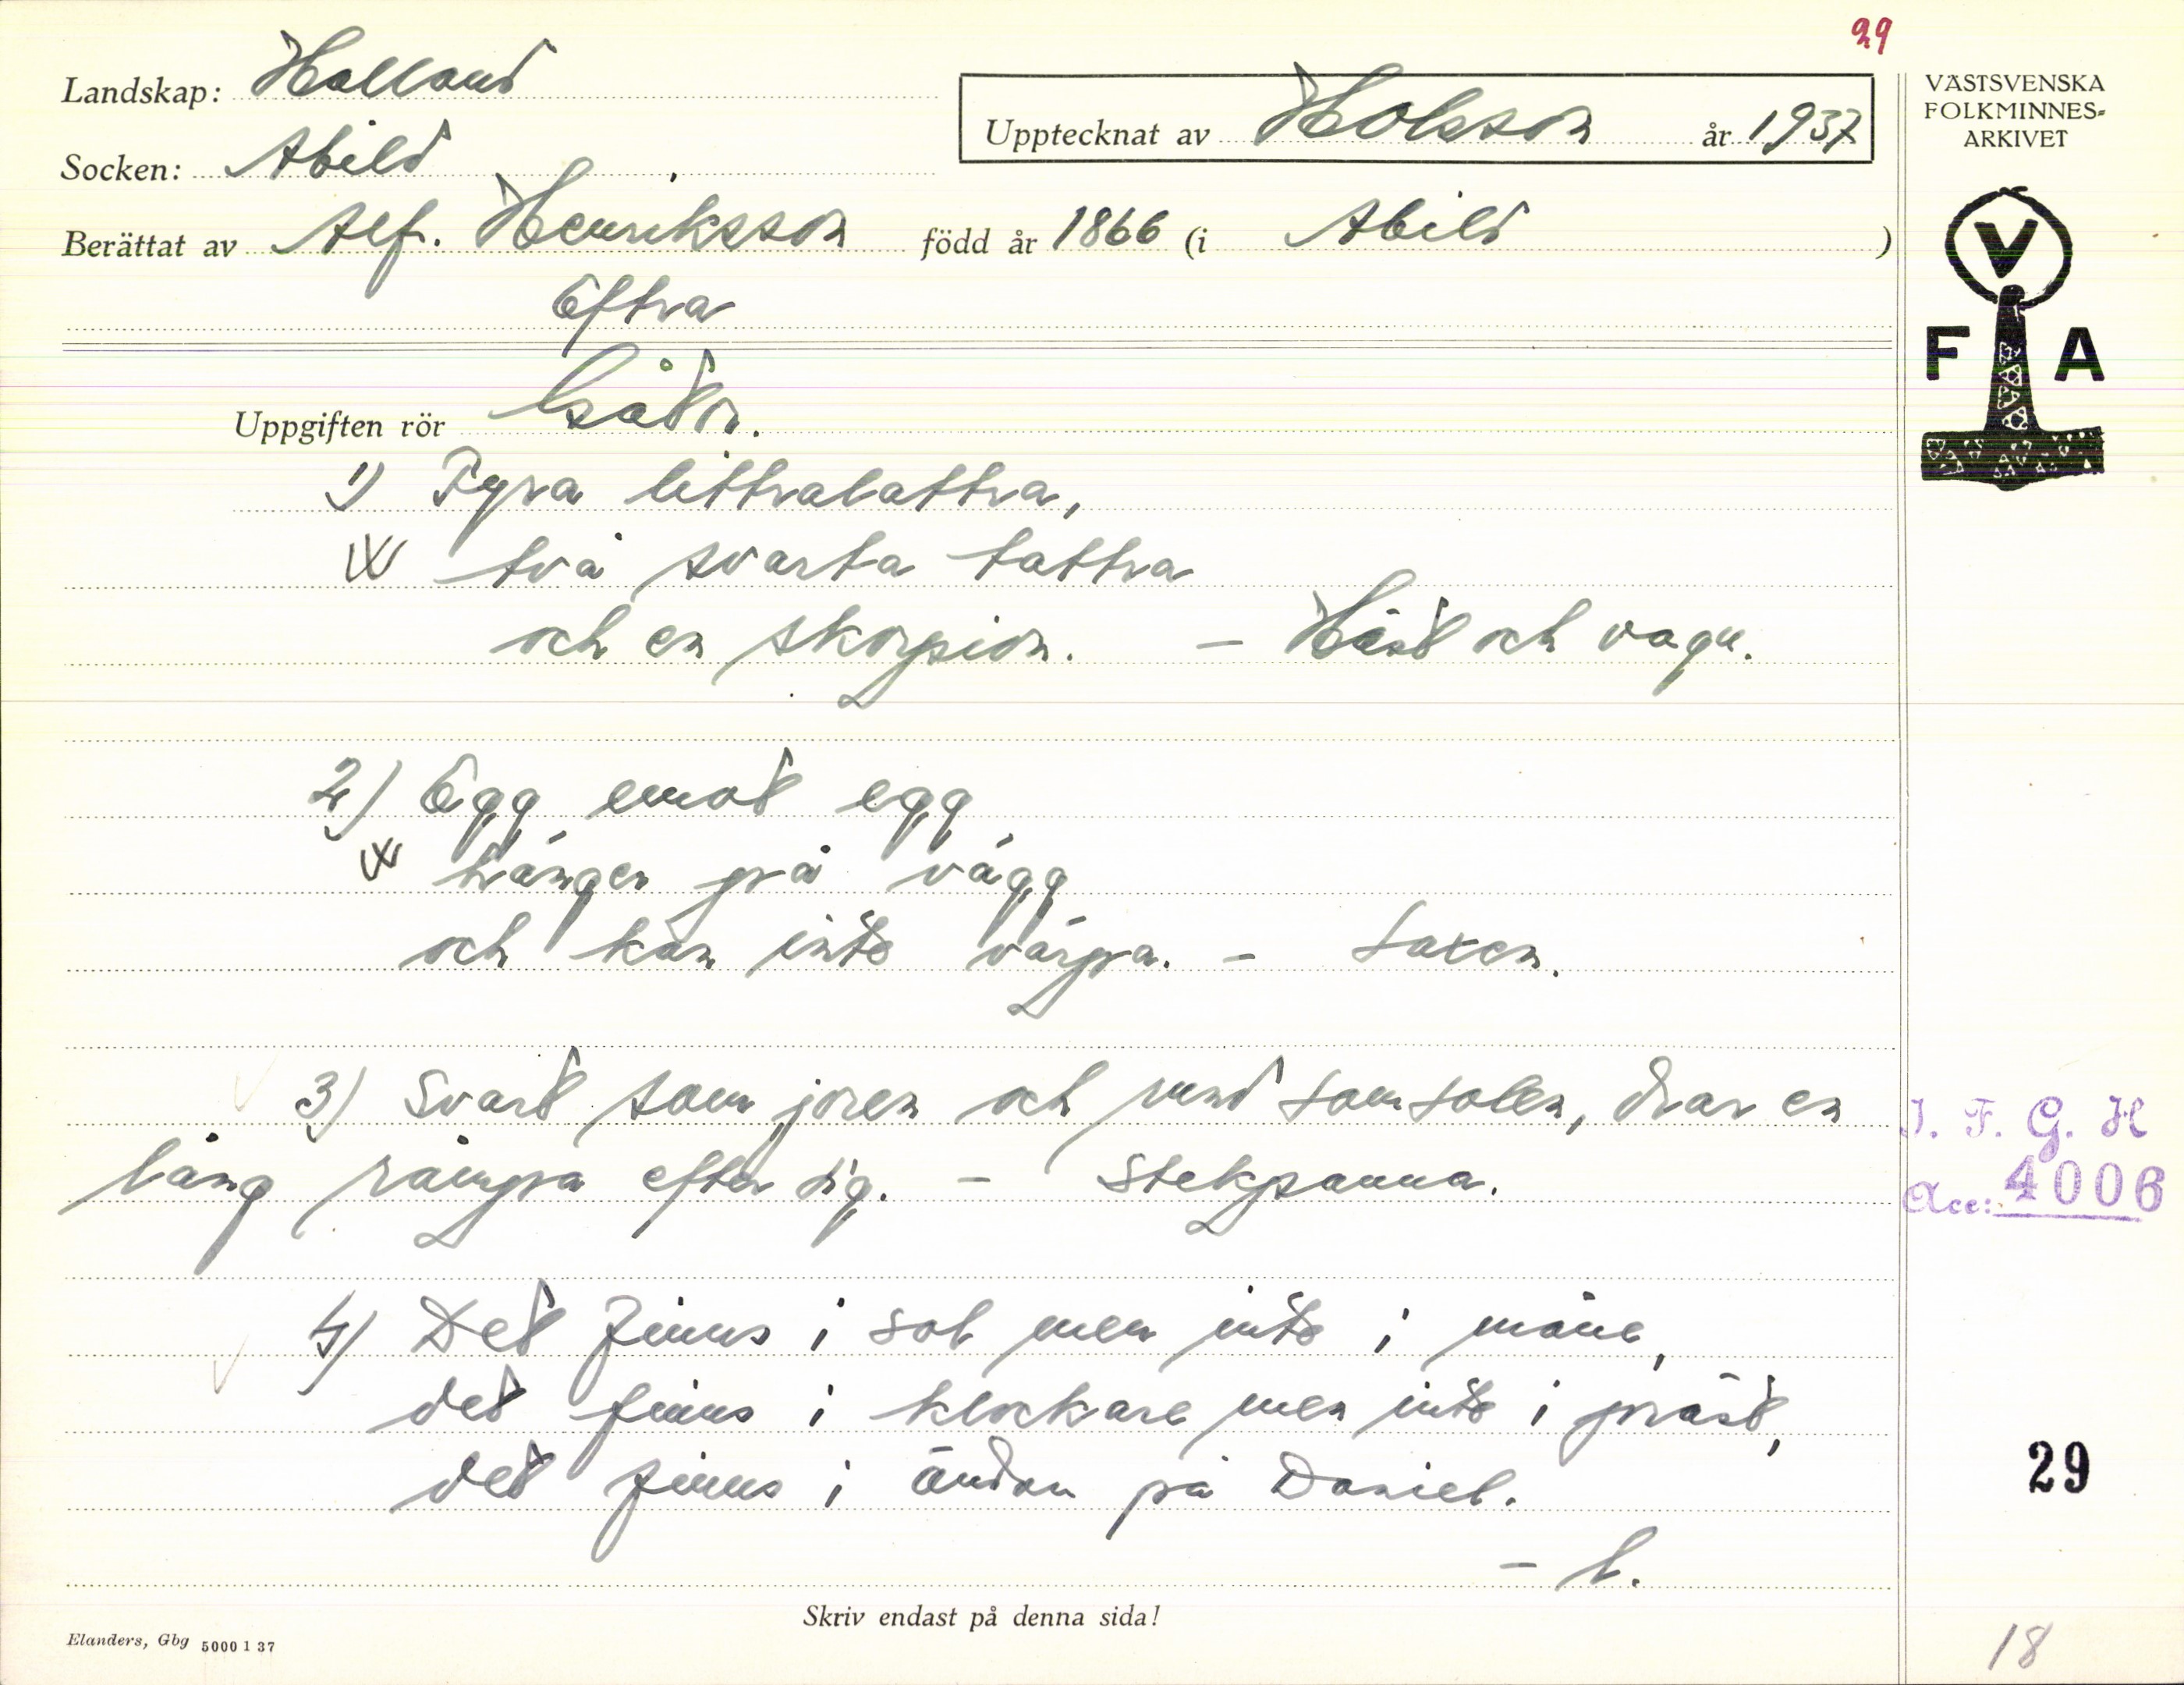 29
Landskap: Halland
Upptecknat av Holsson år 1937
VÄSTSVENSKA
FOLKMINNES-
ARKIVET
Socken: Abild
Berättat av Alf. Henriksson född år 1866 (i Abild)
Eftra
V
F A
Uppgiften rör Gåtor.
1) Fyra littralattra,
två svarta tattra
och en skorpion. – Häst och vagn.
2) Egg emot egg
hänger på vägg
och kan inte värpa. – Saxen.
3) Svart som joren och rund som solen, drar en
lång rämpa efter sig. – Stekpanna.
4) Det finns i sol men inte i måne,
det finns i klockare men inte i präst,
det finns i ändan på Daniel.
– l.
I. F. G. H
Acc: 4006
29
Skriv endast på denna sida!
Elanders, Gbg 5000 1 37
18